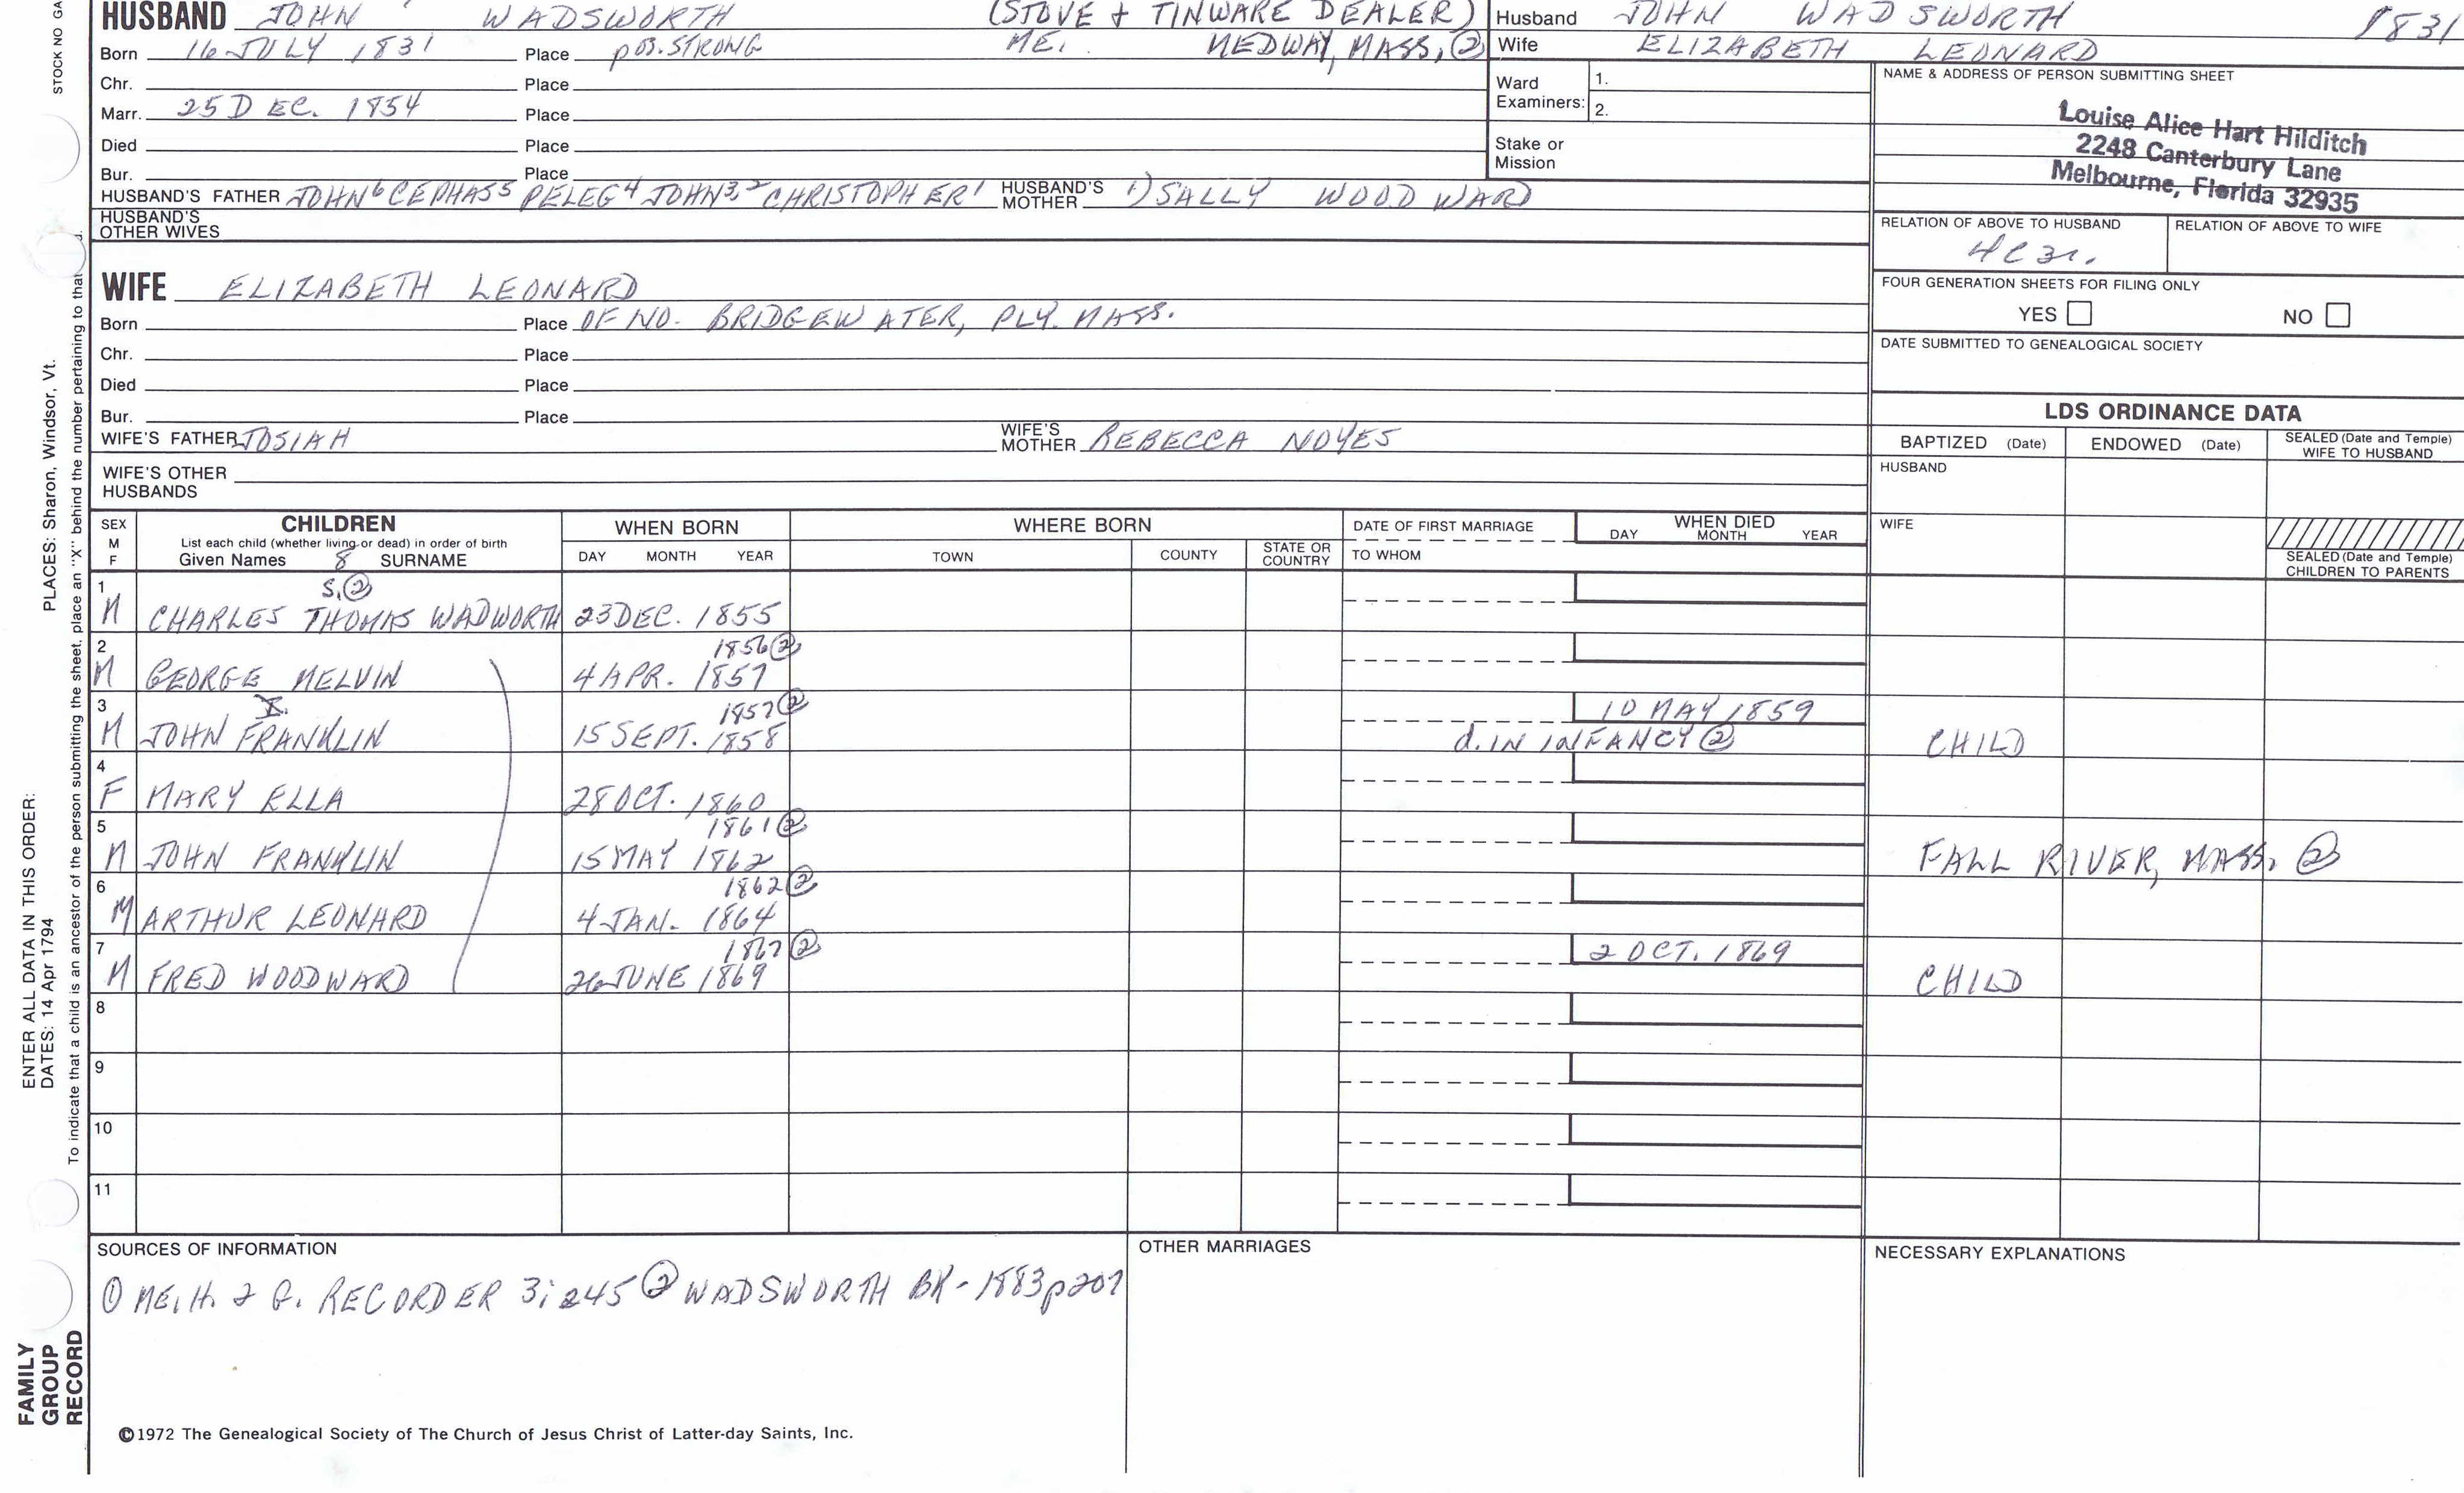 HUSBAND JOHN WADSWORTH (STOVE & TINWARE DEALER)
Born 16 JULY 1831 Place pos. STRONG ME. MEDWAY, MASS, ②
Chr. Place
Marr. 25 DEC. 1854 Place
Died Place
Bur. Place
HUSBAND'S FATHER JOHN⁶ CEPHAS⁵ PELEG⁴ JOHN³,² CHRISTOPHER¹ HUSBAND'S MOTHER 1) SALLY WOODWARD
HUSBAND'S OTHER WIVES
Husband JOHN WADSWORTH 1831
Wife ELIZABETH LEONARD
Ward Examiners: 1.
2.
Stake or Mission
NAME & ADDRESS OF PERSON SUBMITTING SHEET
Louise Alice Hart Hilditch
2248 Canterbury Lane
Melbourne, Florida 32935
RELATION OF ABOVE TO HUSBAND RELATION OF ABOVE TO WIFE
4C3r.
FOUR GENERATION SHEETS FOR FILING ONLY
YES NO
DATE SUBMITTED TO GENEALOGICAL SOCIETY
WIFE ELIZABETH LEONARD
Born Place OF NO. BRIDGEWATER, PLY. MASS.
Chr. Place
Died Place
Bur. Place
WIFE'S FATHER JOSIAH WIFE'S MOTHER REBECCA NOYES
WIFE'S OTHER HUSBANDS
LDS ORDINANCE DATA
BAPTIZED (Date) ENDOWED (Date) SEALED (Date and Temple) WIFE TO HUSBAND
HUSBAND
WIFE
SEALED (Date and Temple) CHILDREN TO PARENTS
SEX M F
CHILDREN
List each child (whether living or dead) in order of birth
Given Names 8 SURNAME
WHEN BORN
DAY MONTH YEAR
WHERE BORN
TOWN COUNTY STATE OR COUNTRY
DATE OF FIRST MARRIAGE
TO WHOM
WHEN DIED
DAY MONTH YEAR
S. ②
1 M CHARLES THOMAS WADWORTH 23 DEC. 1855
1856 ②
2 M GEORGE MELVIN 4 APR. 1857
1857 ② 10 MAY 1859
3 M JOHN I. FRANKLIN 15 SEPT. 1858 d. IN INFANCY ② CHILD
4 F MARY ELLA 28 OCT. 1860
1861 ②
5 M JOHN FRANKLIN 15 MAY 1862 FALL RIVER, MASS. ②
1862 ②
6 M ARTHUR LEONARD 4 JAN. 1864
1867 ② 2 OCT. 1869
7 M FRED WOODWARD 26 JUNE 1869 CHILD
8
9
10
11
SOURCES OF INFORMATION
① ME. H. & G. RECORDER 3:245 ② WADSWORTH BK-1883 p207
OTHER MARRIAGES
NECESSARY EXPLANATIONS
©1972 The Genealogical Society of The Church of Jesus Christ of Latter-day Saints, Inc.
STOCK NO GA
PLACES: Sharon, Windsor, Vt.
ENTER ALL DATA IN THIS ORDER:
DATES: 14 Apr 1794
To indicate that a child is an ancestor of the person submitting the sheet, place an "X" behind the number pertaining to that
FAMILY
GROUP
RECORD